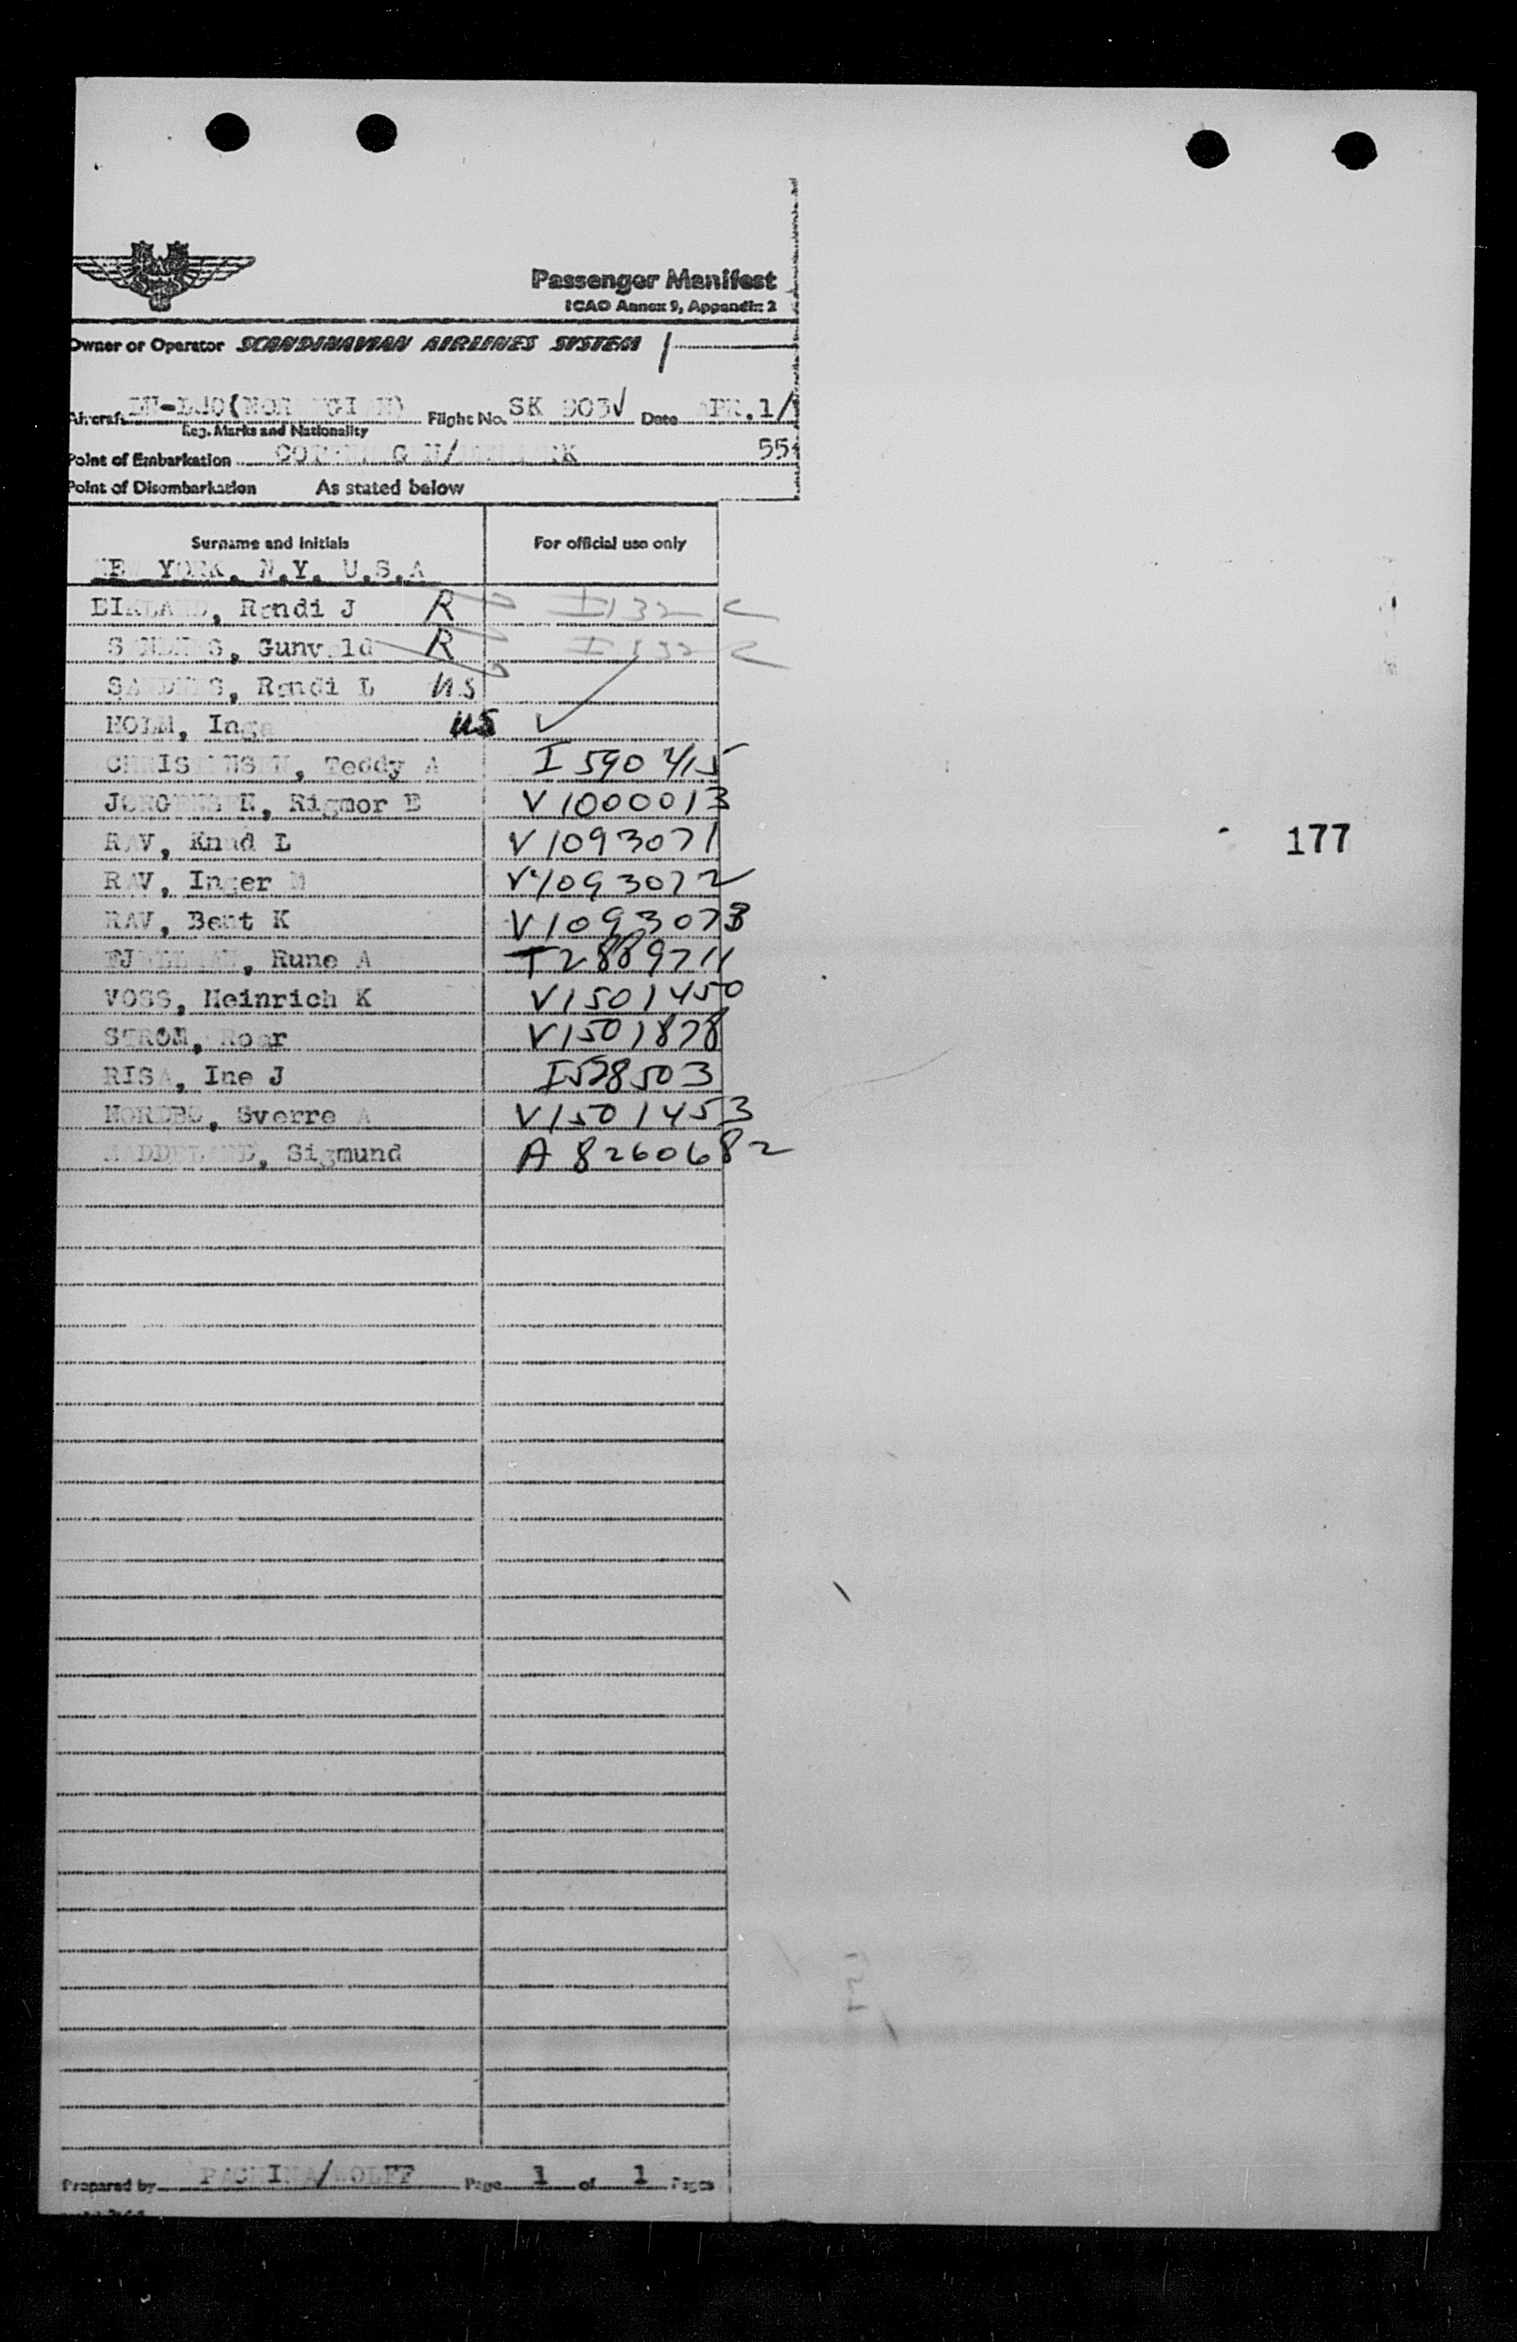 Passenger Manifest
ICAO Annex 9, Appendix 2
Owner or Operator SCANDINAVIAN AIRLINES SYSTEM
Aircraft Flight No. SK 903 Date APR. 1/
Reg. Marks and Nationality
Point of Embarkation 55
Point of Disembarkation As stated below
Surname and initials For official use only
NEW YORK, N.Y. U.S.A
Randi J R I 132
Gunvald R I 132
Randi L US
HOLM, Inga US
Teddy A I 590415
JORGENSEN, Rigmor E V 1000013
RAV, Knud L V 1093071
RAV, Inger M V 1093072
RAV, Bent K V 1093073
Rune A T2889711
VOSS, Heinrich K V1501450
STROM, Roar V1501878
RISA, Ine J I578503
NORDBO, Sverre A V1501453
Sigmund A 8260682
177
Prepared by Page 1 of 1 Pages